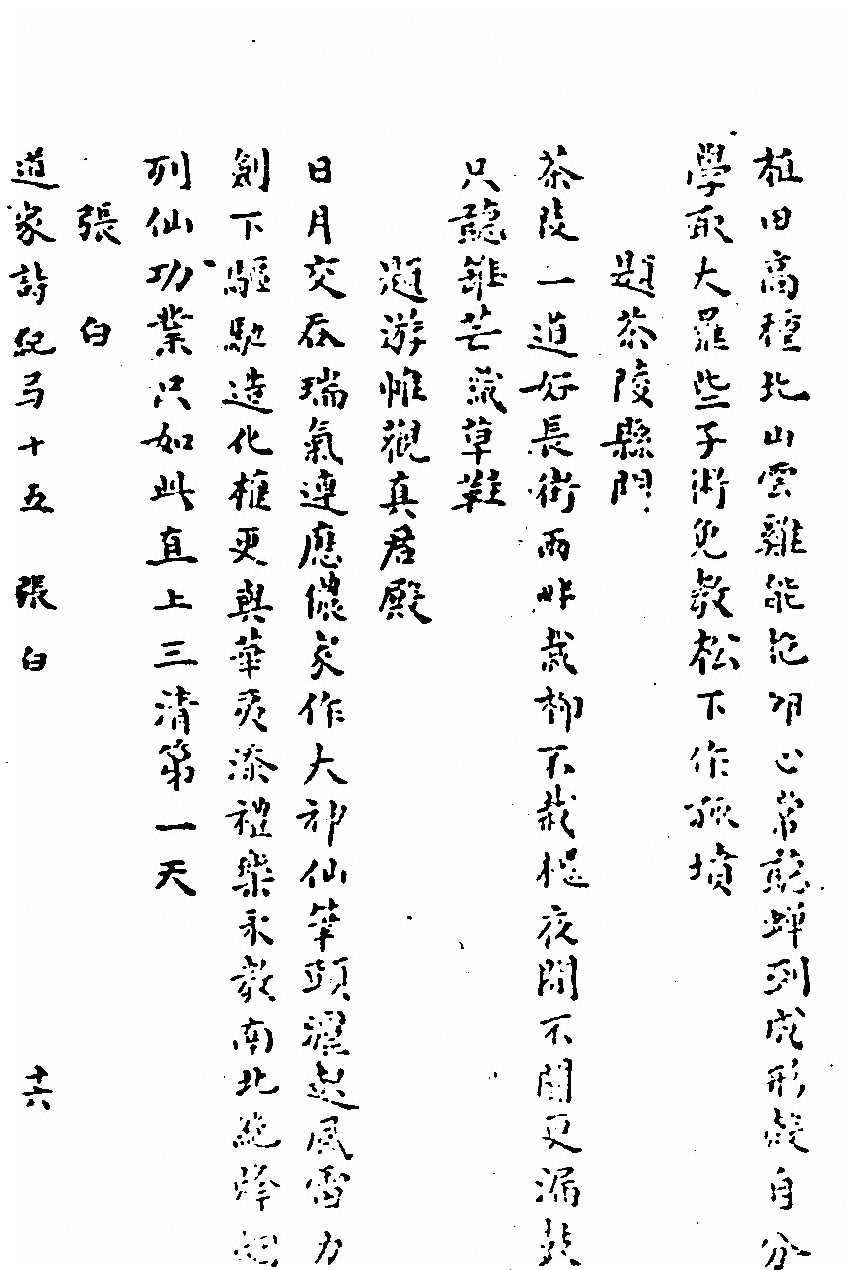 植田高種北山雲雞能抱卵心常聽蟬到成形殼自分
學取大羅些子術免教松下作孤墳
題茶陵縣門
茶陵一道好長街兩畔栽柳不栽槐夜間不聞更漏鼓
只聽錐芒織草鞋
題游帷觀真君殿
日月交吞瑞氣連應儂笑作大神仙筆頭灑起風雷力
劍下驅馳造化權更與華夷添禮樂永教南北絕烽煙
列仙功業只如此直上三清第一天
張白
道家詩紀弓十五 張白 十六